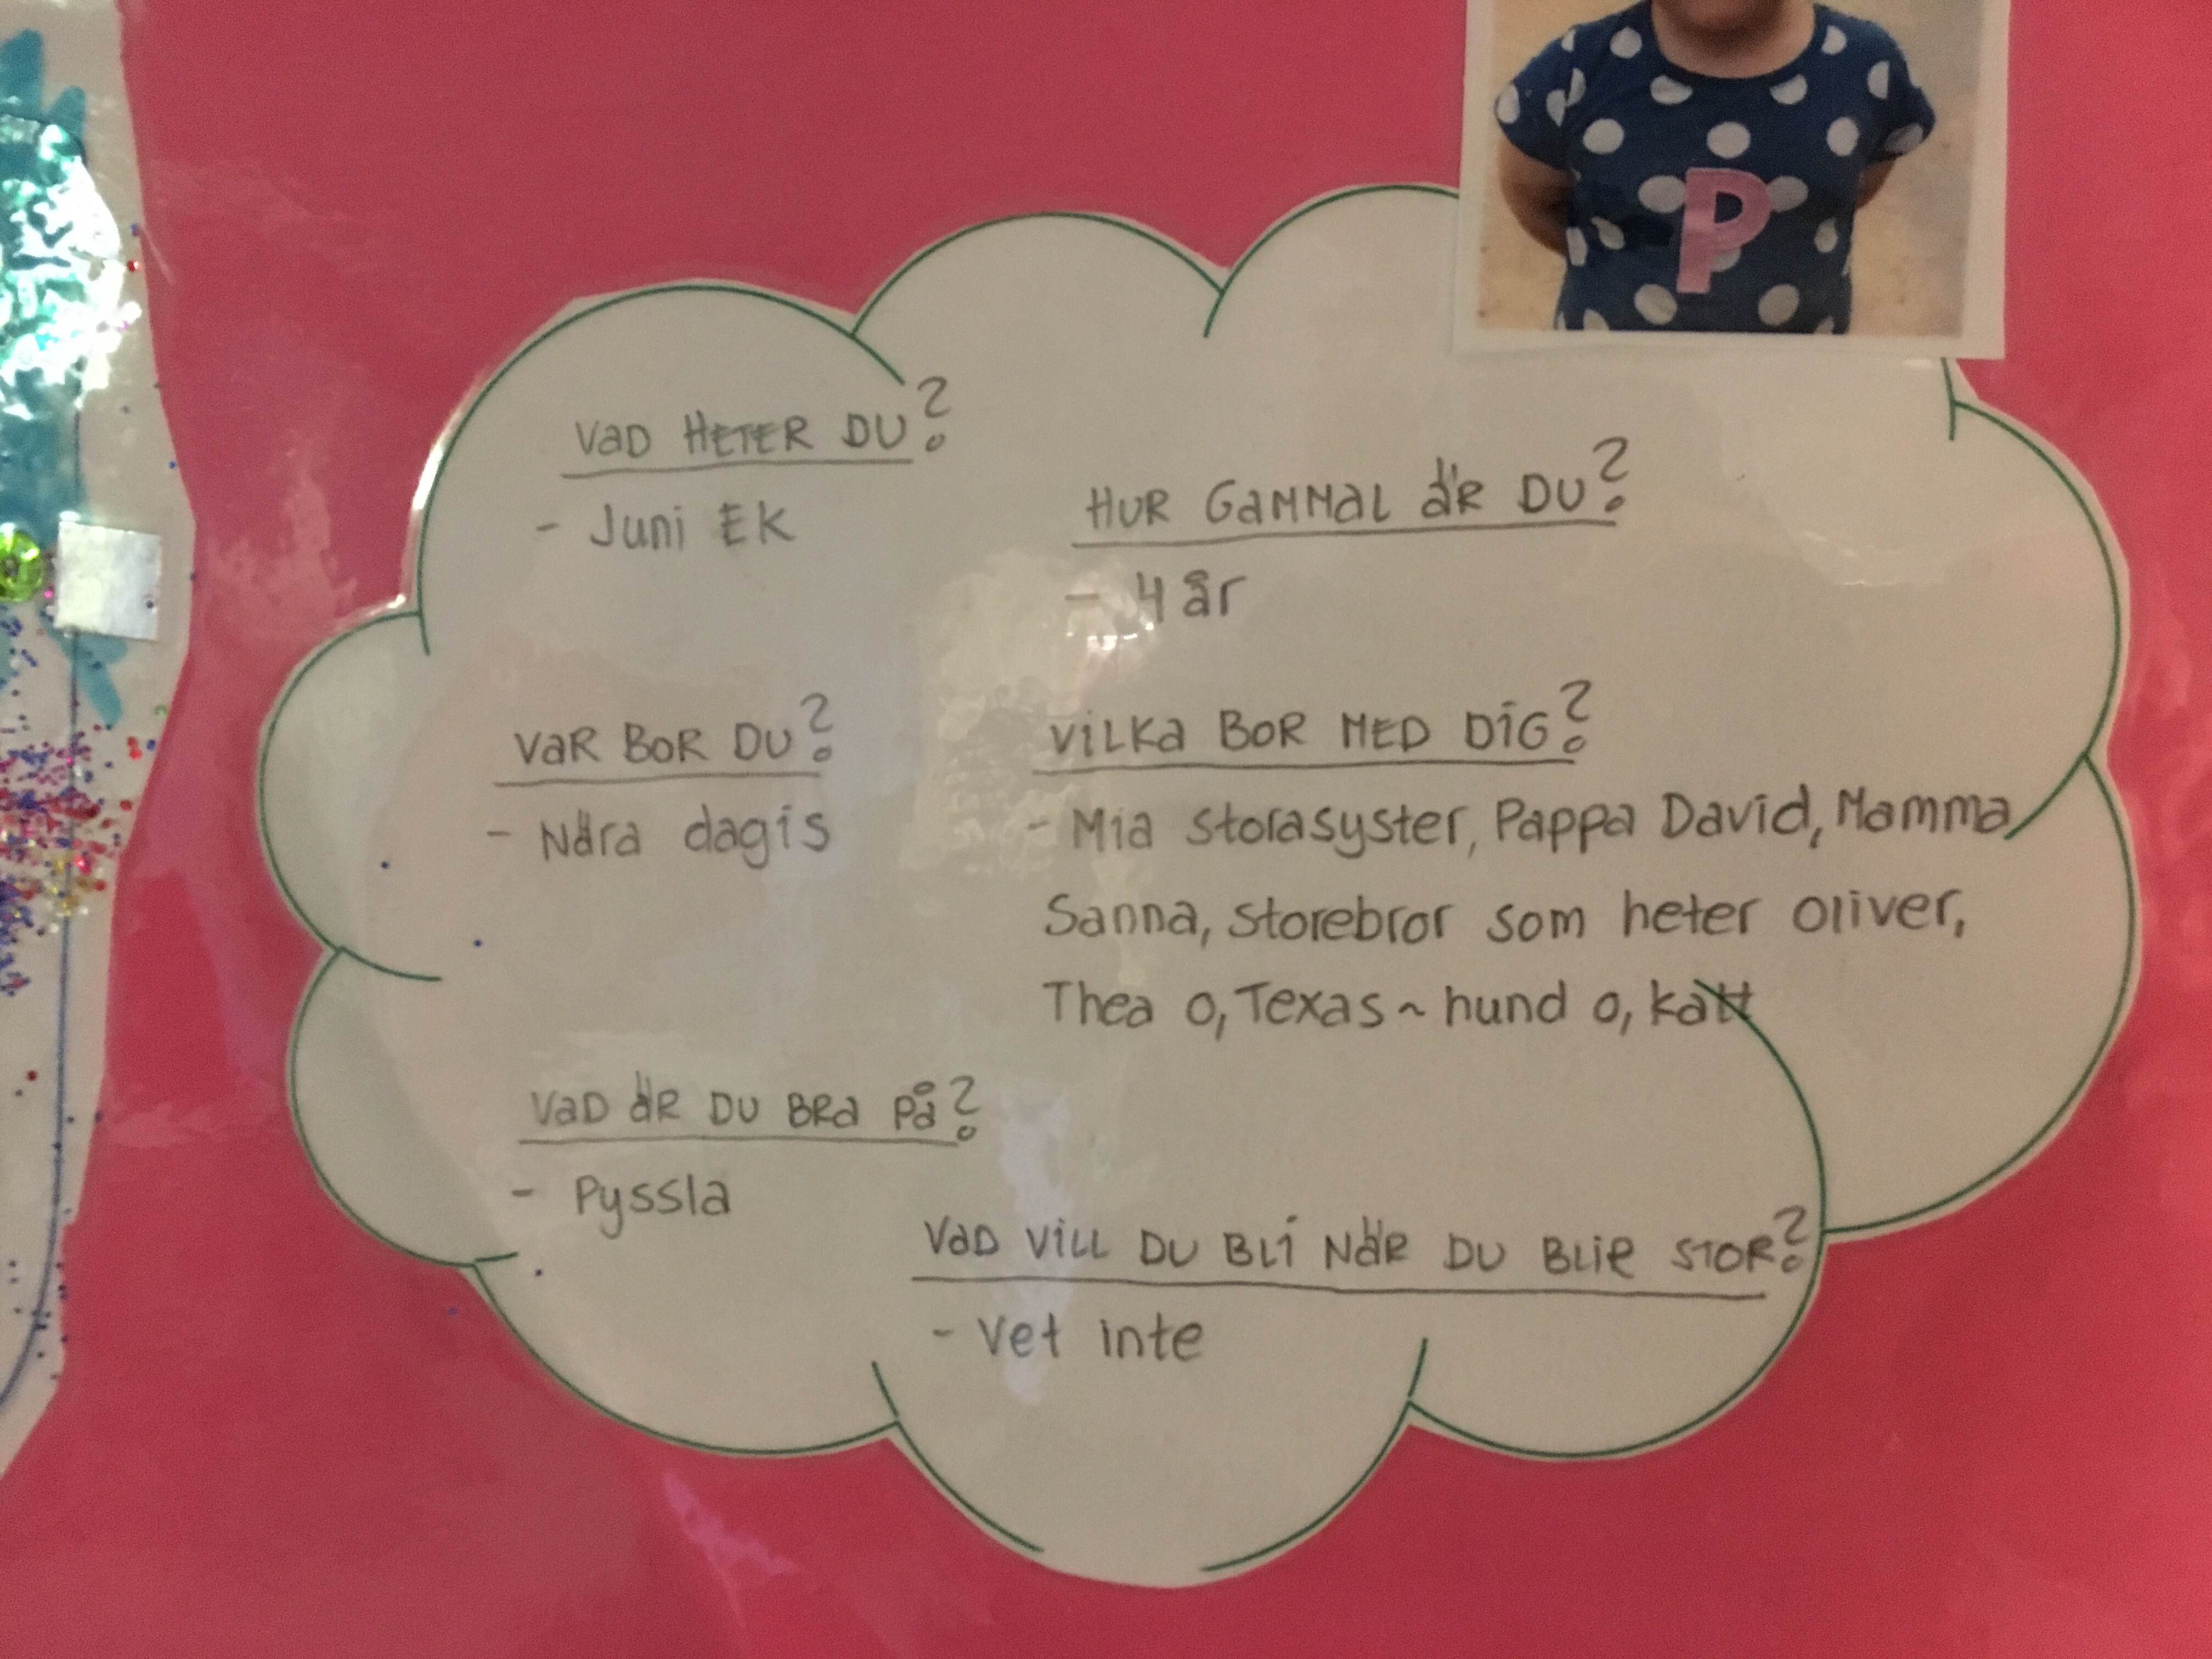 P
VaD HETER DU?
- Juni EK
HUR GaMMaL äR DU?
- 4 år
VaR BoR DU?
- Nära dagis
ViLKa BoR MED DiG?
- Mia storasyster, Pappa David, Mamma
Sanna, storebror som heter oliver,
Thea o, Texas ~ hund o, katt
VaD äR DU BRa På?
- Pyssla
VaD ViLL DU BLi NäR DU BLiR STOR?
- Vet inte